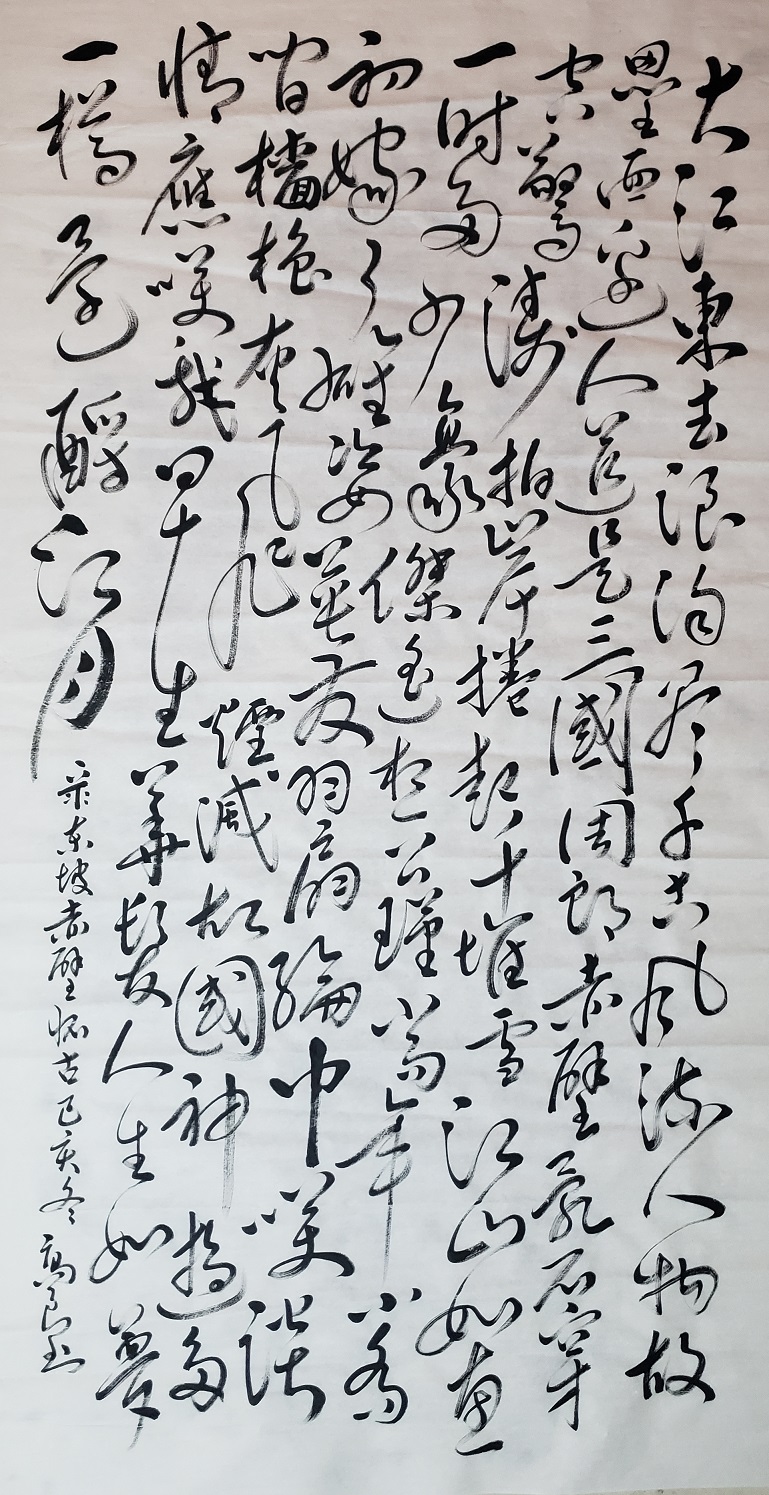 大江東去浪淘尽千古風流人物故
壘西邊人道是三國周郎赤壁亂石穿
空驚濤拍岸捲起千堆雪江山如画
一時多少豪傑遥想公瑾當年小喬
初嫁了雄姿英發羽扇綸巾笑談
間檣櫓灰飛煙滅故國神遊多
情應笑我早生華髮人生如夢
一樽還酹江月
采东坡赤壁怀古己亥冬 高良玉